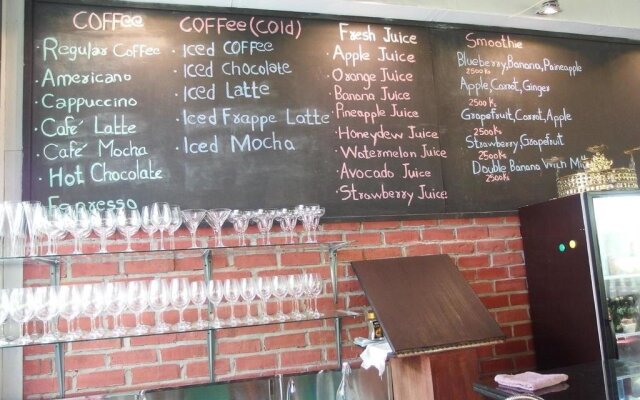 COFFEE
Regular Coffee
Americano
Cappuccino
Café Latte
Café Mocha
Hot Chocolate
Espresso
COFFEE (COLD)
Iced COFFEE
Iced Chocolate
Iced Latte
Iced Frappe Latte
Iced Mocha
Fresh Juice
Apple Juice
Orange Juice
Banana Juice
Pineapple Juice
Honeydew Juice
Watermelon Juice
Avocado Juice
Strawberry Juice
Smoothie
Blueberry, Banana, Paineapple
2500 Ks
Apple, Carrot, Ginger
2500 Ks
Grapefruit, Carrot, Apple
2500 Ks
Strawberry, Grapefruit
2500 Ks
Double Banana With
2500 Ks